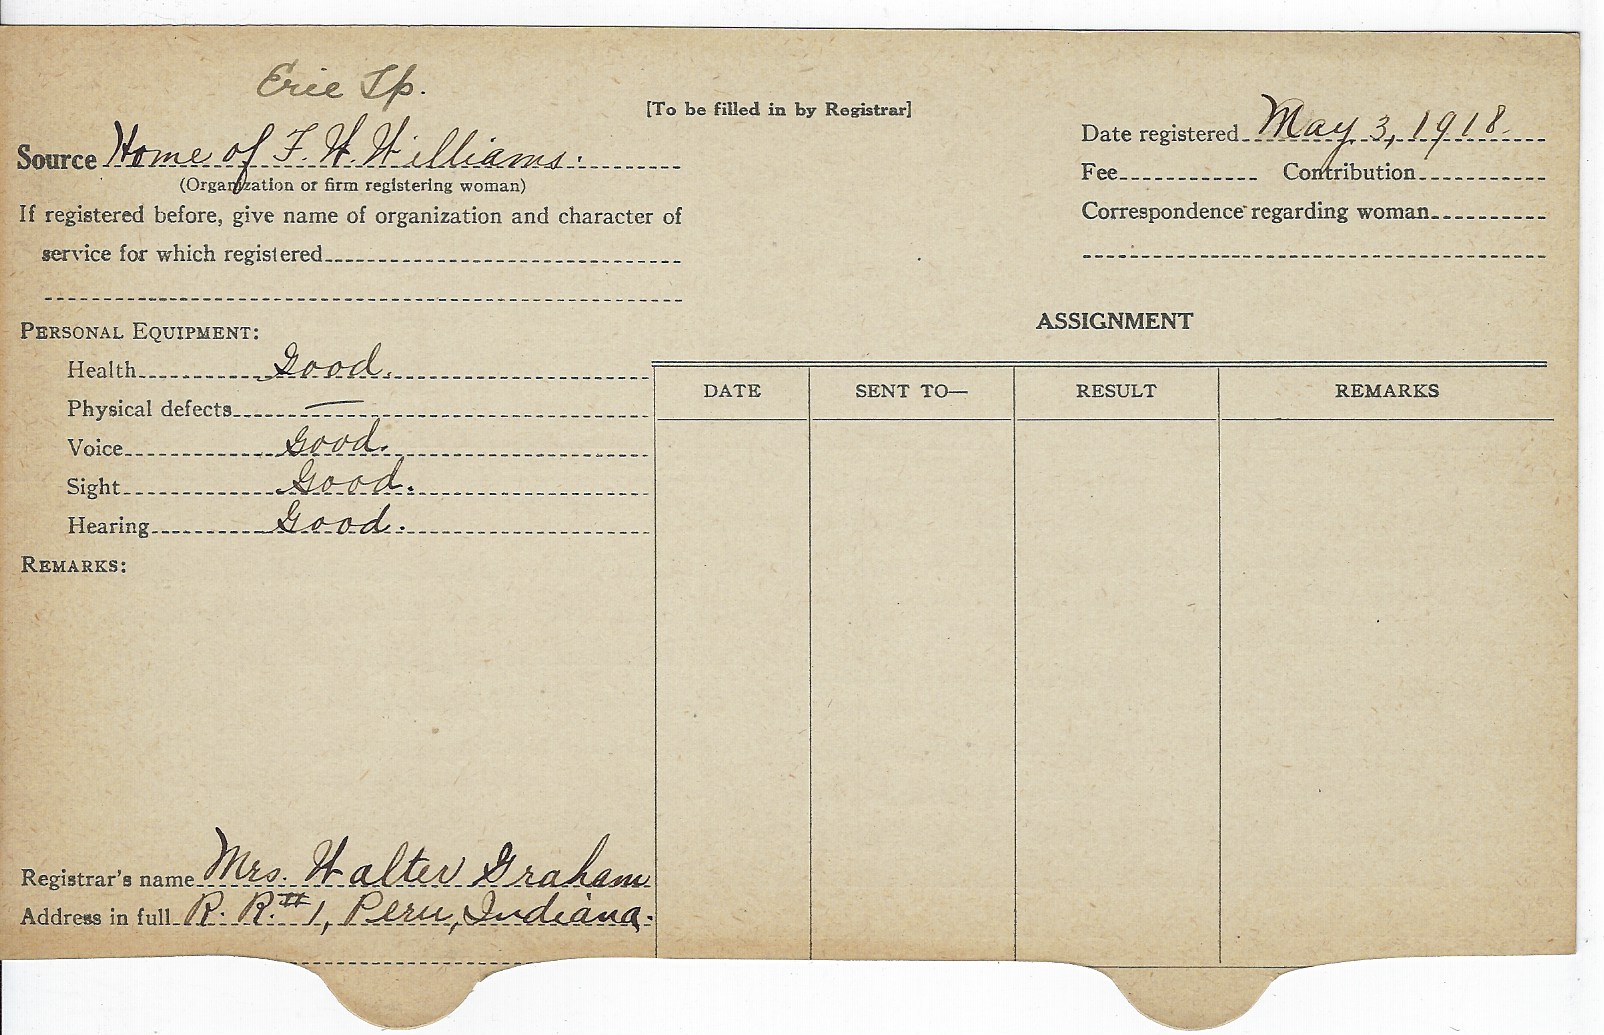 Erie Tp.
[To be filled in by Registrar]
Source Home of F. W. Williams.
(Organization or firm registering woman)
If registered before, give name of organization and character of
service for which registered
Date registered May 3, 1918.
Fee Contribution
Correspondence regarding woman
PERSONAL EQUIPMENT:
Health Good.
Physical defects —
Voice Good.
Sight Good.
Hearing Good.
REMARKS:
ASSIGNMENT
DATE SENT TO— RESULT REMARKS
Registrar's name Mrs. Walter Graham
Address in full R. R. #1, Peru, Indiana.